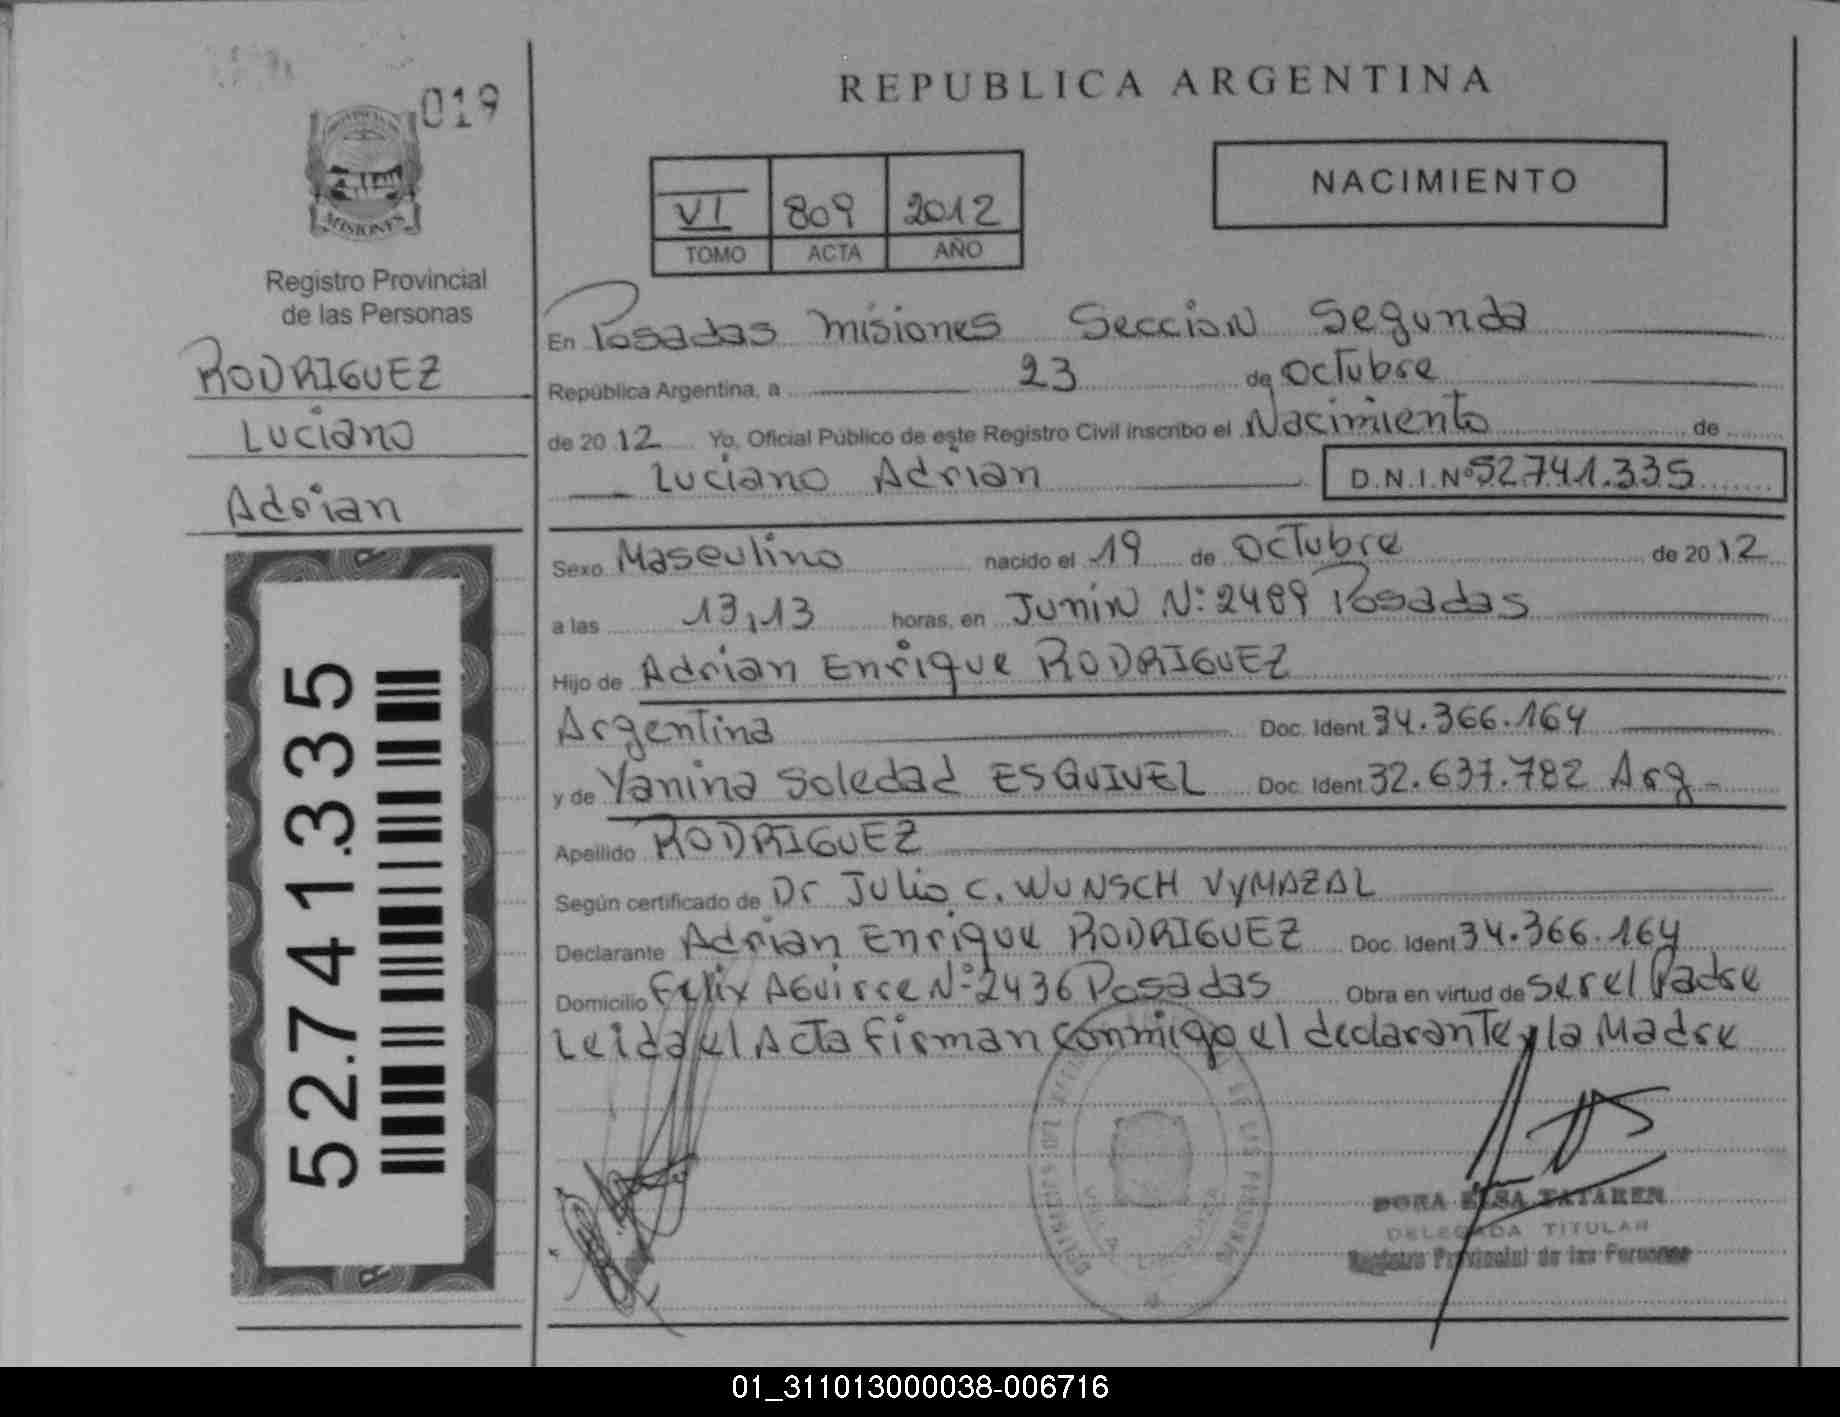 019
PROVINCIA DE
MISIONES
Registro Provincial
de las Personas
RODRIGUEZ
Luciano
Adrian
52.741.335
REPUBLICA ARGENTINA
NACIMIENTO
VI 809 2012
TOMO ACTA AÑO
En Posadas Misiones Seccion Segunda
República Argentina, a 23 de Octubre
de 2012 Yo, Oficial Público de este Registro Civil inscribo el Nacimiento de
Luciano Adrian D.N.I.Nº52.741.335
Sexo Masculino nacido el 19 de Octubre de 2012
a las 13,13 horas, en Junin Nº:2489 Posadas
Hijo de Adrian Enrique RODRIGUEZ
Argentina Doc. Ident. 34.366.164
y de Yanina Soledad ESQUIVEL Doc. Ident. 32.637.782 Arg-
Apellido RODRIGUEZ
Según certificado de Dr Julio C. WUNSCH VYMAZAL
Declarante Adrian Enrique RODRIGUEZ Doc. Ident. 34.366.164
Domicilio Felix Aguirre Nº2436 Posadas Obra en virtud de ser el Padre
Leida el Acta firman conmigo el declarante y la Madre
DORA ELSA TATAREN
DELEGADA TITULAR
Registro Provincial de las Personas
01_311013000038-006716